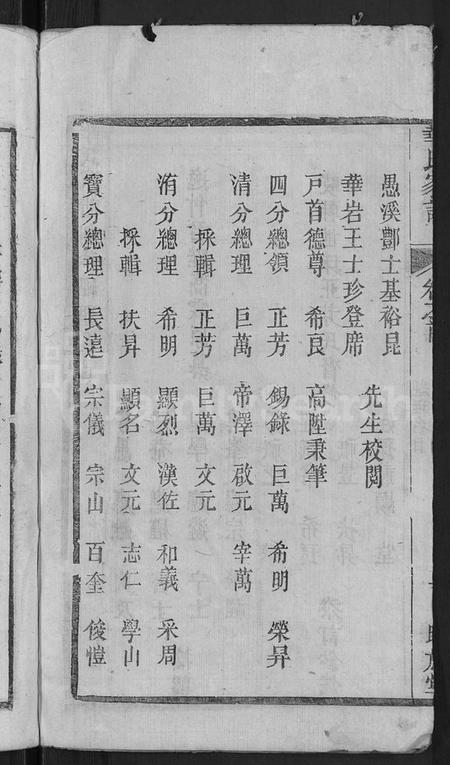 愚溪鄷士基裕昆
華岩王士珍登席
先生校閱
戸首德尊 希良 高陞秉筆
四分總領 正芳 錫錄 巨萬 希明 榮昇
清分總理 巨萬 帝澤 啟元 宰萬
採輯 正芳 巨萬 文元
洧分總理 希明 顯烈 漢佐 和義 采周
採輯 扶昇 顯名 文元 志仁 學山
寶分總理 長遠 宗儀 宗山 百奎 俊愷